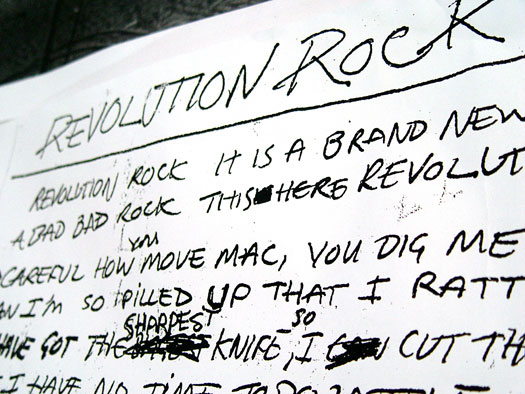 REVOLUTION ROCK
REVOLUTION ROCK IT IS A BRAND NEW
A BAD BAD ROCK THIS HERE REVOLUT
CAREFUL HOW you MOVE MAC, YOU DIG ME
I'm SO PILLED UP THAT I RATT
HAVE GOT THE SHARPEST KNIFE, SO I CUT TH
I HAVE NO TIME TO DO